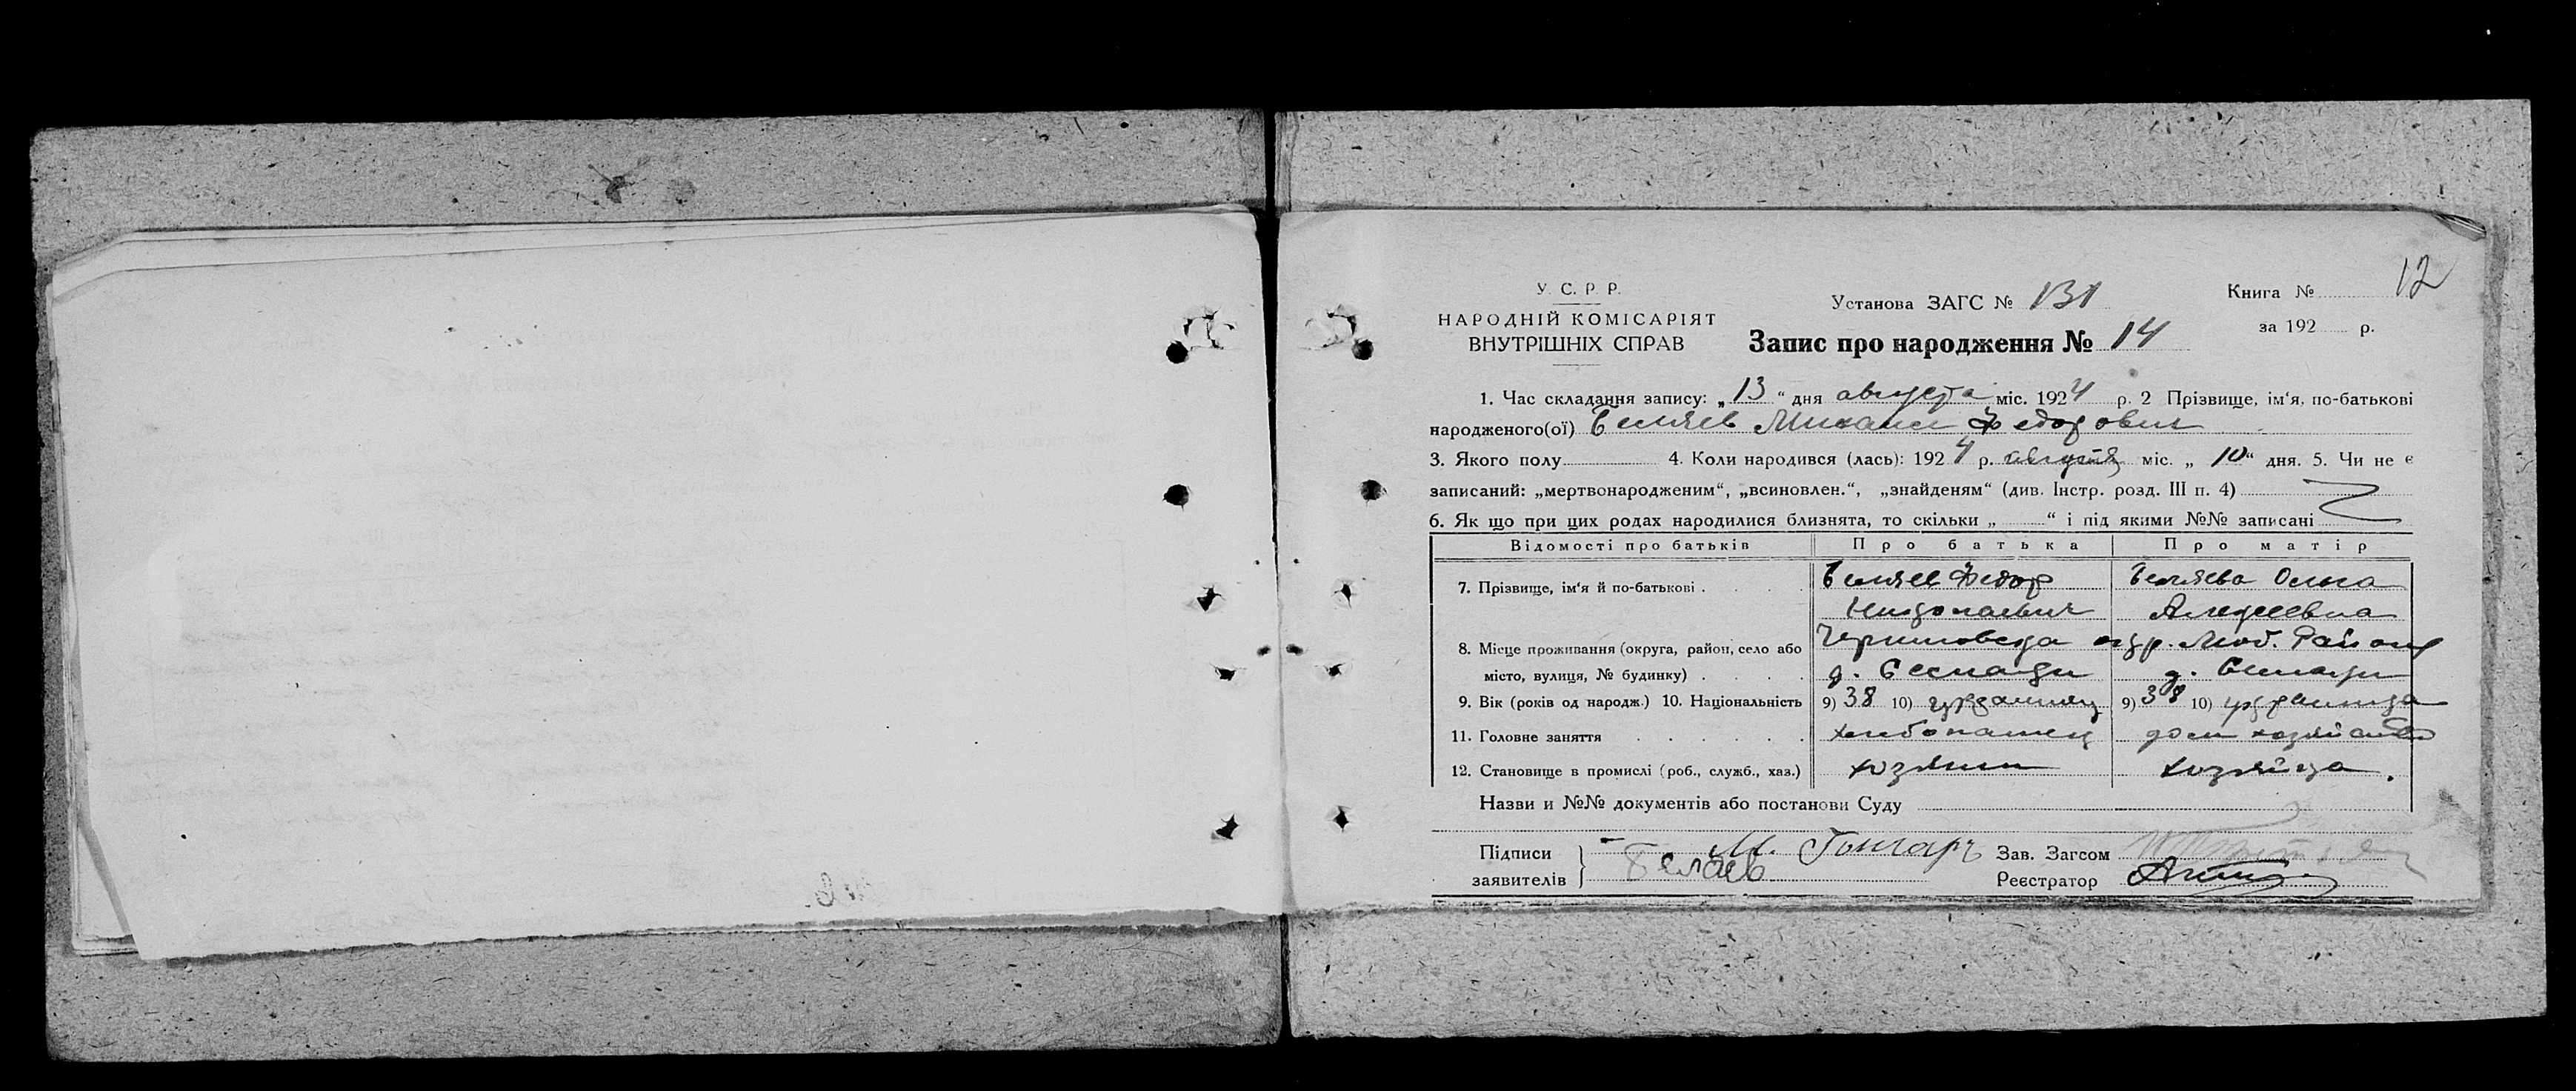 12
У. С. Р. Р.
НАРОДНІЙ КОМІСАРІЯТ
ВНУТРІШНІХ СПРАВ
Установа ЗАГС № 131
Запис про народження № 14
Книга №
за 192 р.
1. Час складання запису: „13“ дня августа міс. 1924 р. 2 Прізвище, ім‘я, по-батькові
народженого(ої) Беляев Михаил Федорович
3. Якого полу 4. Коли народився (лась): 1924 р. августа міс. „10“ дня. 5. Чи не є
записаний: „мертвонародженим“, „всиновлен.“, „знайденям“ (див. Інстр. розд. III п. 4)
6. Як що при цих родах народилися близнята, то скільки „ “ і під якими №№ записані
Відомості про батьків Про батька Про матір
7. Прізвище, ім‘я й по-батькові Беляев Федор Беляева Ольга
Николаевич Алексеевна
8. Місце проживання (округа, район, село або Черниговска окр. Люб. Района
місто, вулиця, № будинку) д. д.
9. Вік (років од народж.) 10. Національність 9) 38 10) украинец 9) 38 10) украинка
11. Головне заняття хлебопашец дом хозяйство
12. Становище в промислі (роб., служб., хаз.) хозяин хозяйка.
Назви и №№ документів або постанови Суду
Підписи М. Гончаръ Зав. Загсом
заявителів Беляев Реєстратор